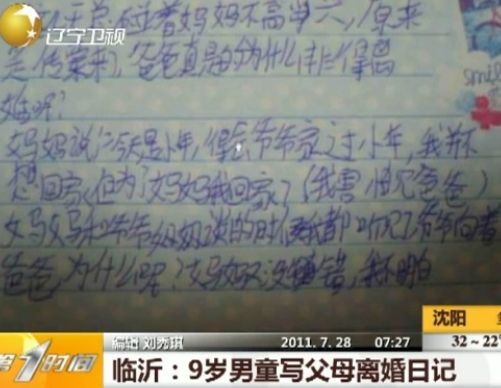 辽宁卫视
着妈妈不高兴,原来
是传票来了,爸爸真是的为什么非得离
婚呢?
妈妈说:"今天是小年,得去爷爷家过小年,我并不
想回家,但为了妈妈我回家了(我害怕见爸爸)
妈妈和爷爷奶奶谈的时候我都听见了爷爷向着
爸爸,为什么呢?妈妈又没做错,我不明白
沈阳
编辑 刘秀琪
2011.7.28 07:27
32~22
第1时间
临沂:9岁男童写父母离婚日记